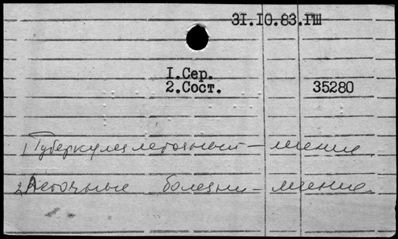 31.10.83.ГШ
1.Сер.
2.Сост. 35280
1) Туберкулез легочный – лечение
2) Легочные болезни – лечение